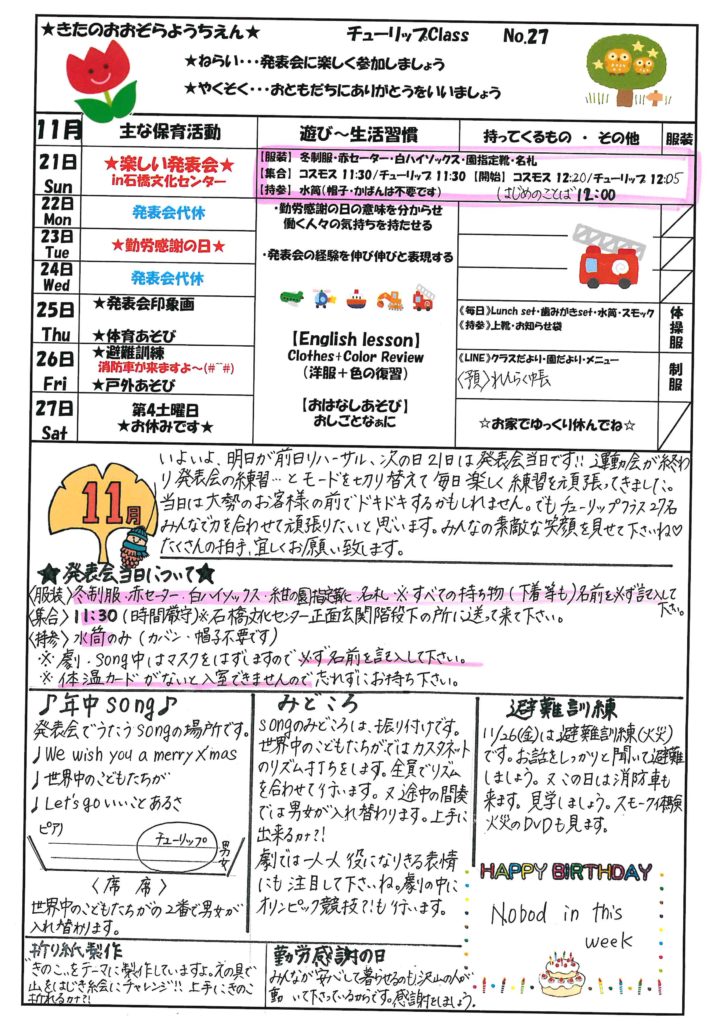 ★きたのおおぞらようちえん★　チューリップClass　No.27
★ねらい・・・発表会に楽しく参加しましょう
★やくそく・・・おともだちにありがとうをいいましょう
11月　主な保育活動　遊び～生活習慣　持ってくるもの ・ その他　服装
21日 Sun
★楽しい発表会★
in石橋文化センター
【服装】 冬制服・赤セーター・白ハイソックス・園指定靴・名札
【集合】 コスモス 11:30/チューリップ 11:30 【開始】 コスモス 12:20/チューリップ 12:05
【持参】 水筒（帽子・かばんは不要です）　(はじめのことば 12:00
22日 Mon
発表会代休
・勤労感謝の日の意味を分からせ
働く人々の気持ちを持たせる
23日 Tue
★勤労感謝の日★
・発表会の経験を伸び伸びと表現する
24日 Wed
発表会代休
25日 Thu
★発表会印象画
★体育あそび
【English lesson】
Clothes+Color Review
（洋服＋色の復習）
《毎日》Lunch set・歯みがきset・水筒・スモック
《持参》上靴・お知らせ袋
体操服
26日 Fri
★避難訓練
消防車が来ますよ～(#^^#)
★戸外あそび
《LINE》クラスだより・園だより・メニュー
〈預〉れんらく帳
制服
27日 Sat
第4土曜日
★お休みです★
【おはなしあそび】
おしごとなぁに
☆お家でゆっくり休んでね☆
11月
いよいよ、明日が前日リハーサル、次の日21日は発表会当日です!! 運動会が終わ
り発表会の練習…とモードを切り替えて毎日楽しく練習を頑張ってきました。
当日は大勢のお客様の前でドキドキするかもしれません。でもチューリップクラス27名
みんなで力を合わせて頑張りたいと思います。みんなの素敵な笑顔を見せて下さいね♡
たくさんの拍手、宜しくお願い致します。
★発表会当日について★
〈服装〉冬制服・赤セーター・白ハイソックス・紺の園指定靴・名札 ※すべての持ち物(下着等も)名前を必ず記入して
下さい。
〈集合〉11:30(時間厳守)※石橋文化センター正面玄関階段下の所に送って来て下さい。
〈持参〉水筒のみ(カバン・帽子不要です)
※劇・song中はマスクをはずしますので必ず名前を記入して下さい。
※体温カードがないと入室できませんので忘れずにお持ち下さい。
♪年中song♪
発表会でうたうsongの場所です。
♩We wish you a merry Xmas
♩世界中のこどもたちが
♩Let's go いいことあるさ
ピアノ
チューリップ
男女
〈 席 席 〉
世界中のこどもたちがの2番で男女が
入れ替わります。
みどころ
songのみどころは、振り付けです。
世界中のこどもたちがではカスタネット
のリズム打ちをします。全員でリズム
を合わせて行います。又途中の間奏
では男女が入れ替わります。上手に
出来るかナ?!
劇では一人一人役になりきる表情
にも注目して下さいね。劇の中に
オリンピック競技?!も行います。
避難訓練
11/26(金)は避難訓練(火災)
です。お話をしっかりと聞いて避難
しましょう。又この日は消防車も
来ます。見学しましょう。スモーク体験
火災のDVDも見ます。
HAPPY BIRTHDAY
Nobod in this
week
折り紙製作
"きのこ"をテーマに製作していますよ。絵の具で
山をはじき絵にチャレンジ!! 上手にきのこ
折れるかナ?!
勤労感謝の日
みんなが安心して暮らせるのも沢山の人が
働いて下さっているからです。感謝をしましょう。